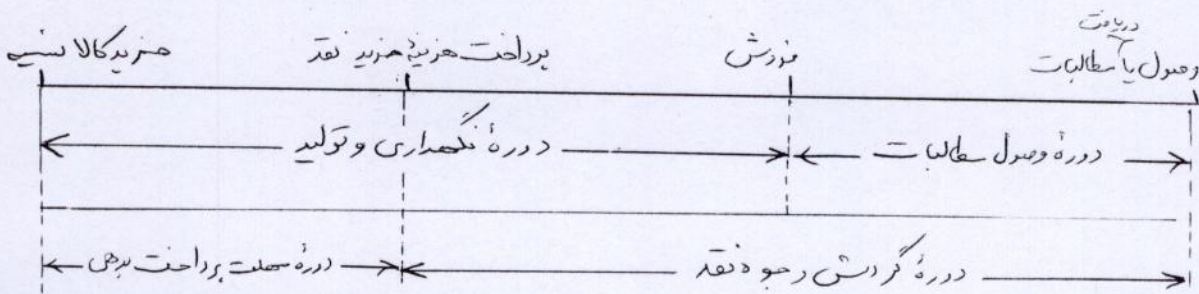 خرید کالا نسیه
پرداخت هزینه خرید نقد
فروش
دریافت
وصول یا مطالبات
دورهٔ نگهداری و تولید
دورهٔ وصول مطالبات
دورهٔ مهلت پرداخت بدهی
دورهٔ گردش وجوه نقد